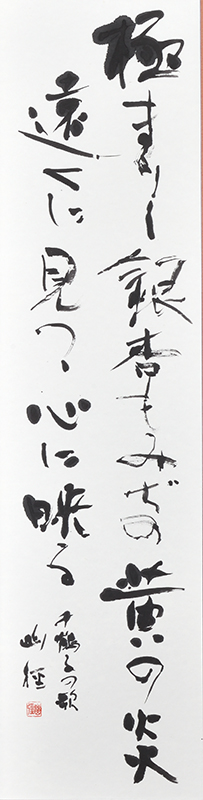 極まりし銀杏もみぢの黄の炎
遠くに見つゝ心に映る
千鶴子の歌